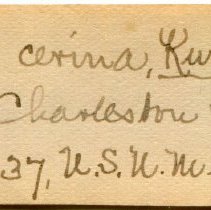 cerina, Ku
Charleston
37, U.S.N.M.